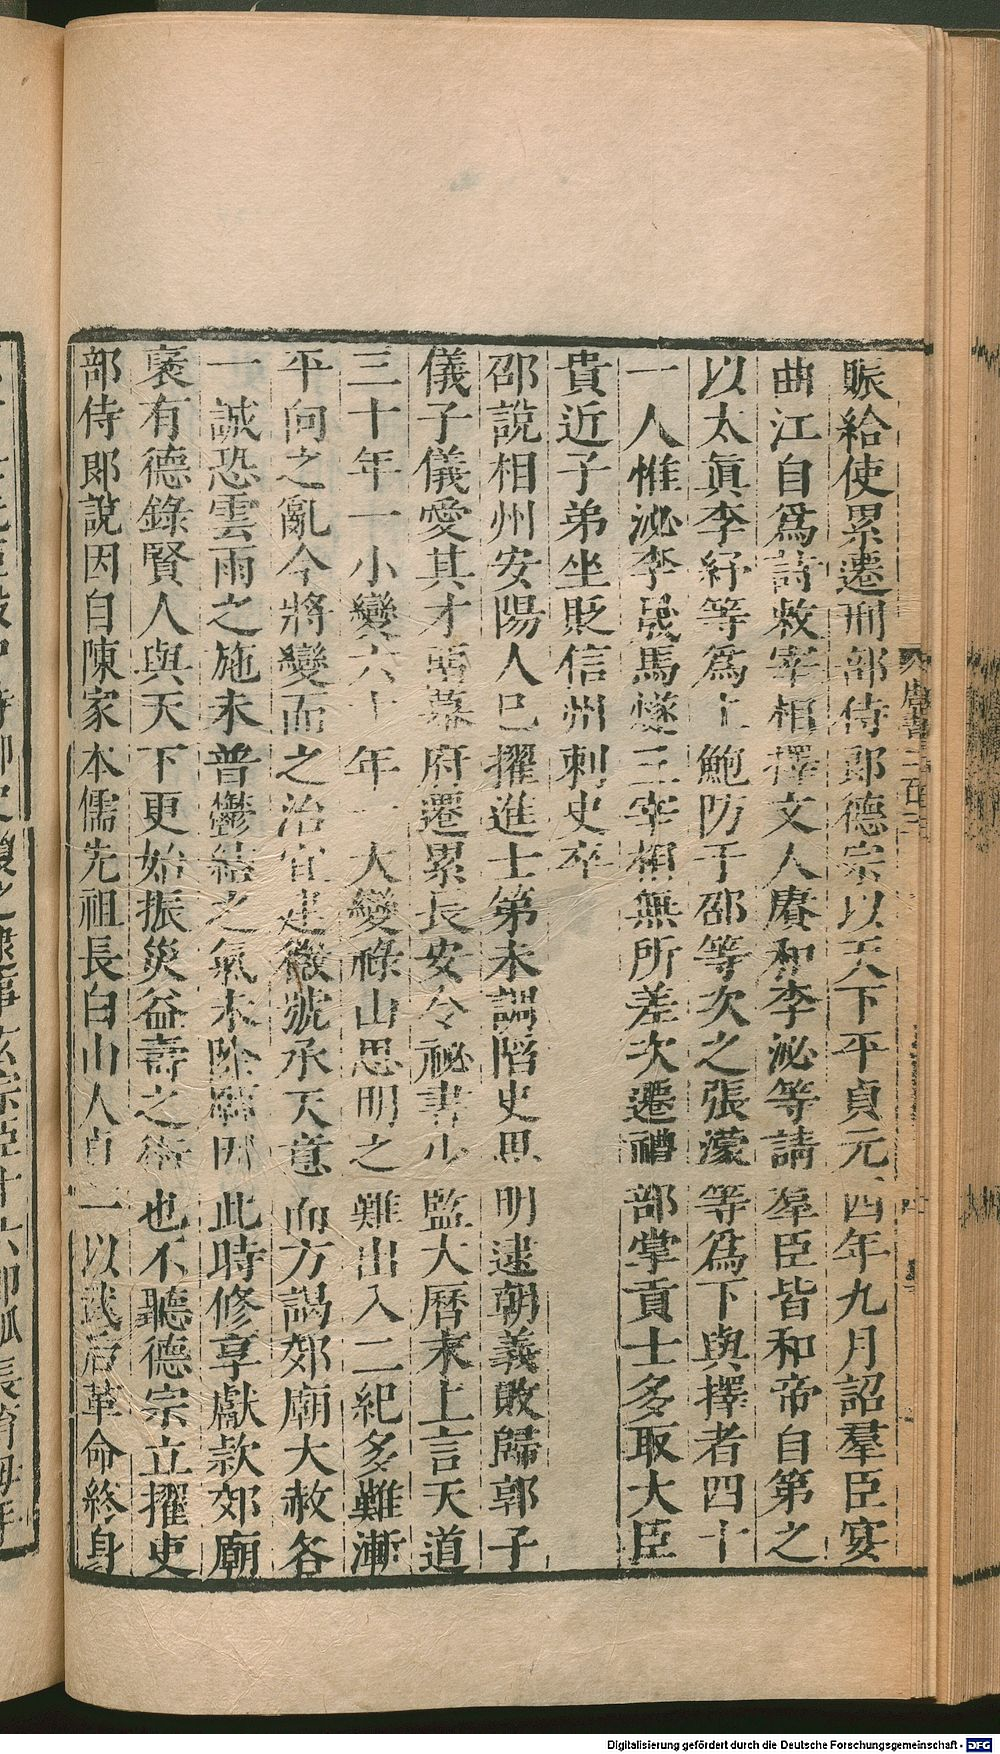 賑給使累遷刑部侍郎德宗以天下平貞元四年九月詔羣臣宴
曲江自爲詩敕宰相擇文人賡和李泌等請羣臣皆和帝自第之
以太眞李紓等爲上鮑防于邵等次之張濛等爲下與擇者四十
一人惟泌李晟馬燧三宰相無所差次遷禮部掌貢士多取大臣
貴近子弟坐貶信州刺史卒
邵說相州安陽人已擢進士第未調陷史思明逮朝義敗歸郭子
儀子儀愛其才留幕府遷累長安令祕書少監大曆末上言天道
三十年一小變六十年一大變祿山思明之難出入二紀多難漸
平向之亂今將變而之治宜建徽號承天意而方謁郊廟大赦各
一誠恐雲雨之施未普鬱結之氣未除願因此時修享獻款郊廟
褒有德錄賢人與天下更始振災益壽之術也不聽德宗立擢吏
部侍郎說因自陳家本儒先祖長白山人貞一以武后革命終身
唐書二百三
Digitalisierung gefördert durch die Deutsche Forschungsgemeinschaft - DFG